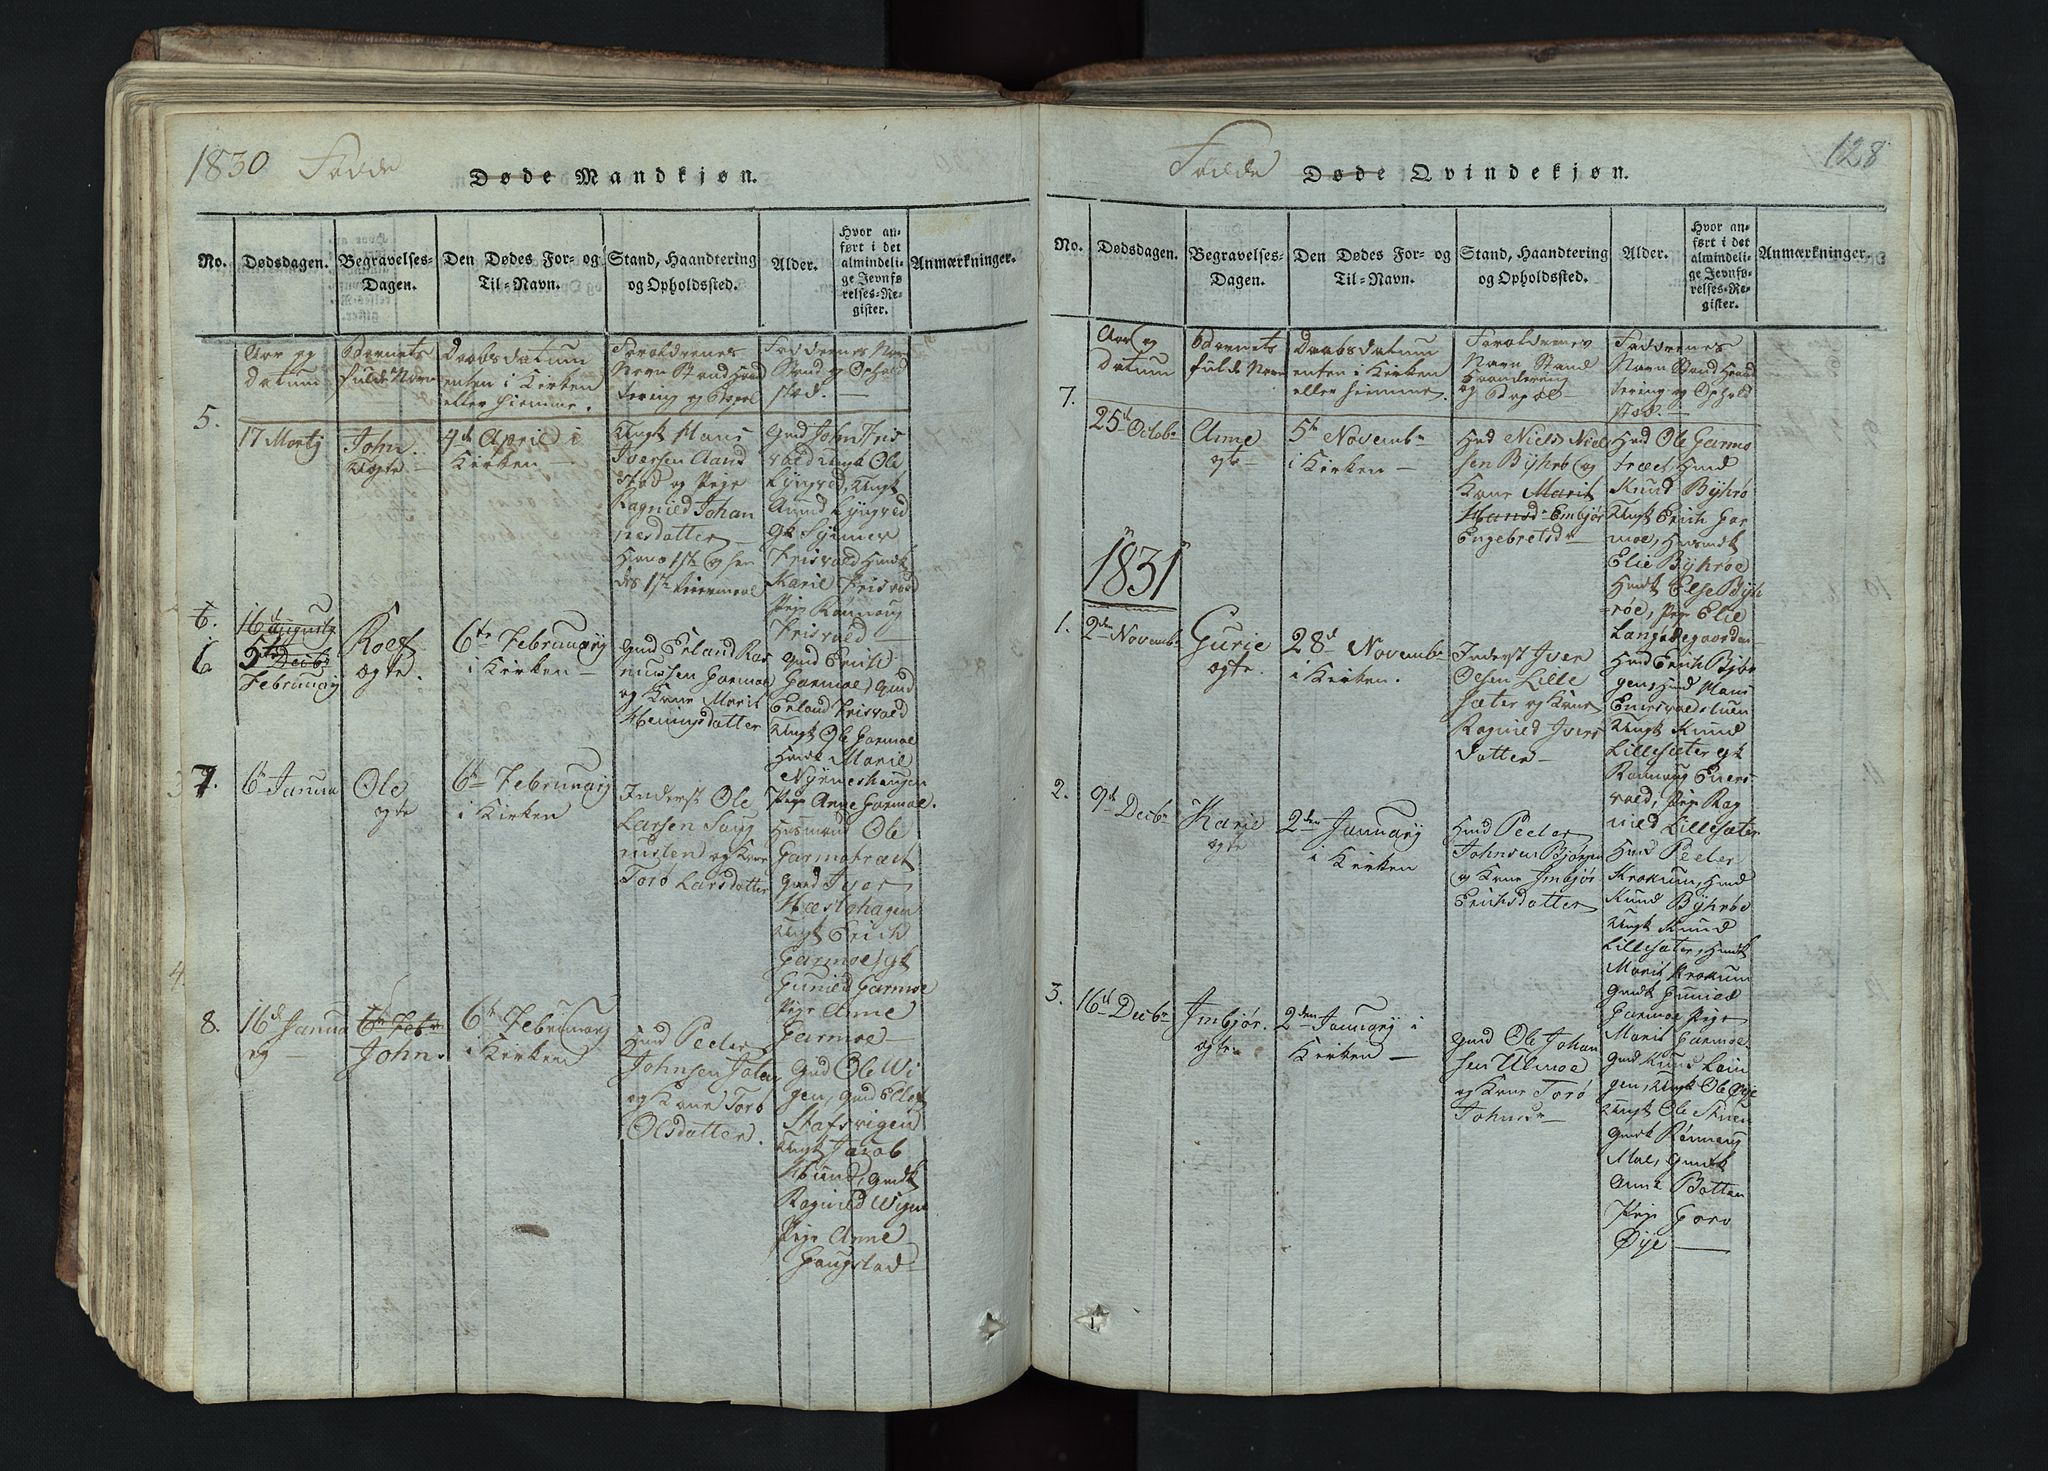 1830 Fødde
Døde Mandkjøn.
No.
Dødsdagen.
Begravelses-
Dagen.
Den Dødes For- og
Til-Navn.
Stand, Haandtering
og Opholdssted.
Alder.
Hvor an-
ført i det
almindeli-
ge Jevnfø-
relses-Re-
gister.
Anmærkninger.
Aar og
Datum
Barnets
fulde Navn
Daabsdatum
enten i Kirken
eller hjemme.
Forældrenes
Navn Stand Haand
tering og Bopæl
Faddernes Navn
Stand og Ophold
sted.
5.
17 Martj
John.
Uægte.
4d April i
Kirken
Ungk Hans
Iversen Aand
stad og Pige
Ragnild Johan
nesdatter
Hans 1ste og hen
des 1ste Leiermaal
Gmd John Fris
vold Ungk Ole
Lyngved, Ungk
Amund Lyngved
Gk
Frisvold Hmdk
Karie Frisvold
Pige Rønnaug
Frisvold
6.
16d Augusty
6
5te Decbr
Februarij
Roef
ægte.
6te Februarij
i Kirken
Gmd Erland Ras
mussen Garmoe
og Kone Marit
Hemingsdatter
Gmd Erich
Garmoe, Gmd
Erland Frisvold
Ungk Ole Garmoe
Hmdk Marie
Nyrneshaugen
Pige Anne Garmoe.
7.
6te Janua
Ole
ægte
6te Februarij
i Kirken
Inderst Ole
Larsen Saug
rusten og Kone
Torø Larsdatter
Husmand Ole
Garmotræet
Gmd Iver
Hæstehagen
Ungk Erich
Garmoe, gk
Gunild Garmoe
Pige Anne
Garmoe
4.
8.
16d Janua
rij
6te Febr
John.
6te Februarij
i Kirken
Hmd Peder
Johnsen
og Kone Torø
Olsdatter.
Gmd Ole Wi
gen, Gmd Elef
Stafsvigen
Ungk Jacob
Hsund, Gmdk
Ragnild Wigen
Pige Anne
Haugstad
Fødde
Døde Qvindekjøn.
128
No.
Dødsdagen.
Begravelses-
Dagen.
Den Dødes For- og
Til-Navn.
Stand, Haandtering
og Opholdssted.
Alder.
Hvor an-
ført i det
almindeli-
ge Jevnfø-
relses-Re-
gister.
Anmærkninger.
Aar og
Datum
Barnets
fulde Navn
Daabsdatum
enten i Kirken
eller hjemme.
Forældrenes
Navn Stand
Haandtering
og Bopæl
Faddernes
Navn Stand Haand
tering og Ophold
sted.
7.
25d Octobr
Anne
ægte
5te Novembr
i Kirken
Hmd Niels Niel
sen Byhrø og
Kone Marit
Hansdr Embjør
Engebretsdr
Hmd Ole Garmo
træet, Hmd
Knud Byhrø
Ungk Erich Gar
moe, Husmdk
Elie Byhrøe
Hmdk Else Byh
røe, Pige Elie
Langødegaarden
1831
1.
2den Novembr
Gurie
ægte.
28d Novembr
i Kirken.
Inderst Iver
Olsen Lille
sæter og Kone
Ragnild Ivers
datter
Hmd Erich Bybø
gen, Hmd Hans
Enersvoldstuen
Ungk Knud
Lillesæter gk
Rønnaug Eners
vold, Pige Rag
nild Lillesæter
2.
9d Decbr
Karie
ægte
2den Januarij
i Kirken
Hmd Peder
Johnsen Bjørgen
og Kone Imbjør
Erichsdatter
Hmd Peder
Krokum, Hmd
Knud Byhrøe
Ungk Knud
Lillesæter, Hmdk
Marit Krokum
Gmdk Gunild
Garmoe Pige
Marit Garmoe
3.
16d Decbr
Imbjør.
ægte.
2den Januarij i
Kirken
Gmd Ole Johan
sen Ulmoe
og Kone Torø
Johnsdr
Gmd Knud Løin
gen, Ungk Ole Øye
Ungk Ole Stuen
Gmdk Rønnaug
Moe, Gmdk
Anne Botten
Pige Goro
Øye